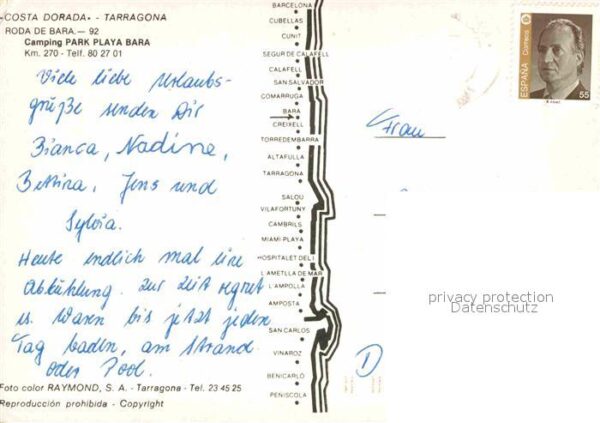 «COSTA DORADA» - TARRAGONA
RODA DE BARA.— 92
Camping PARK PLAYA BARA
Km. 270 - Telf. 80 27 01
Viele liebe Urlaubs-
grüße senden Dir
Bianca, Nadine,
Bettina, Jens und
Sylvia.
Heute endlich mal eine
Abkühlung. Zur Zeit regnet
es. Waren bis jetzt jeden
Tag baden, am Strand
oder Pool.
Foto color RAYMOND, S. A. - Tarragona - Tel. 23 45 25
Reproducción prohibida - Copyright
BARCELONA
CUBELLAS
CUNIT
SEGUR DE CALAFELL
CALAFELL
SAN SALVADOR
COMARRUGA
BARA
CREIXELL
TORREDEMBARRA
ALTAFULLA
TARRAGONA
SALOU
VILAFORTUNY
CAMBRILS
MIAMI-PLAYA
HOSPITALET DEL I
L'AMETLLA DE MAR
L'AMPOLLA
AMPOSTA
SAN CARLOS
VINAROZ
BENICARLÓ
PEÑISCOLA
ESPAÑA
Correos
55
Frau
D
privacy protection
Datenschutz